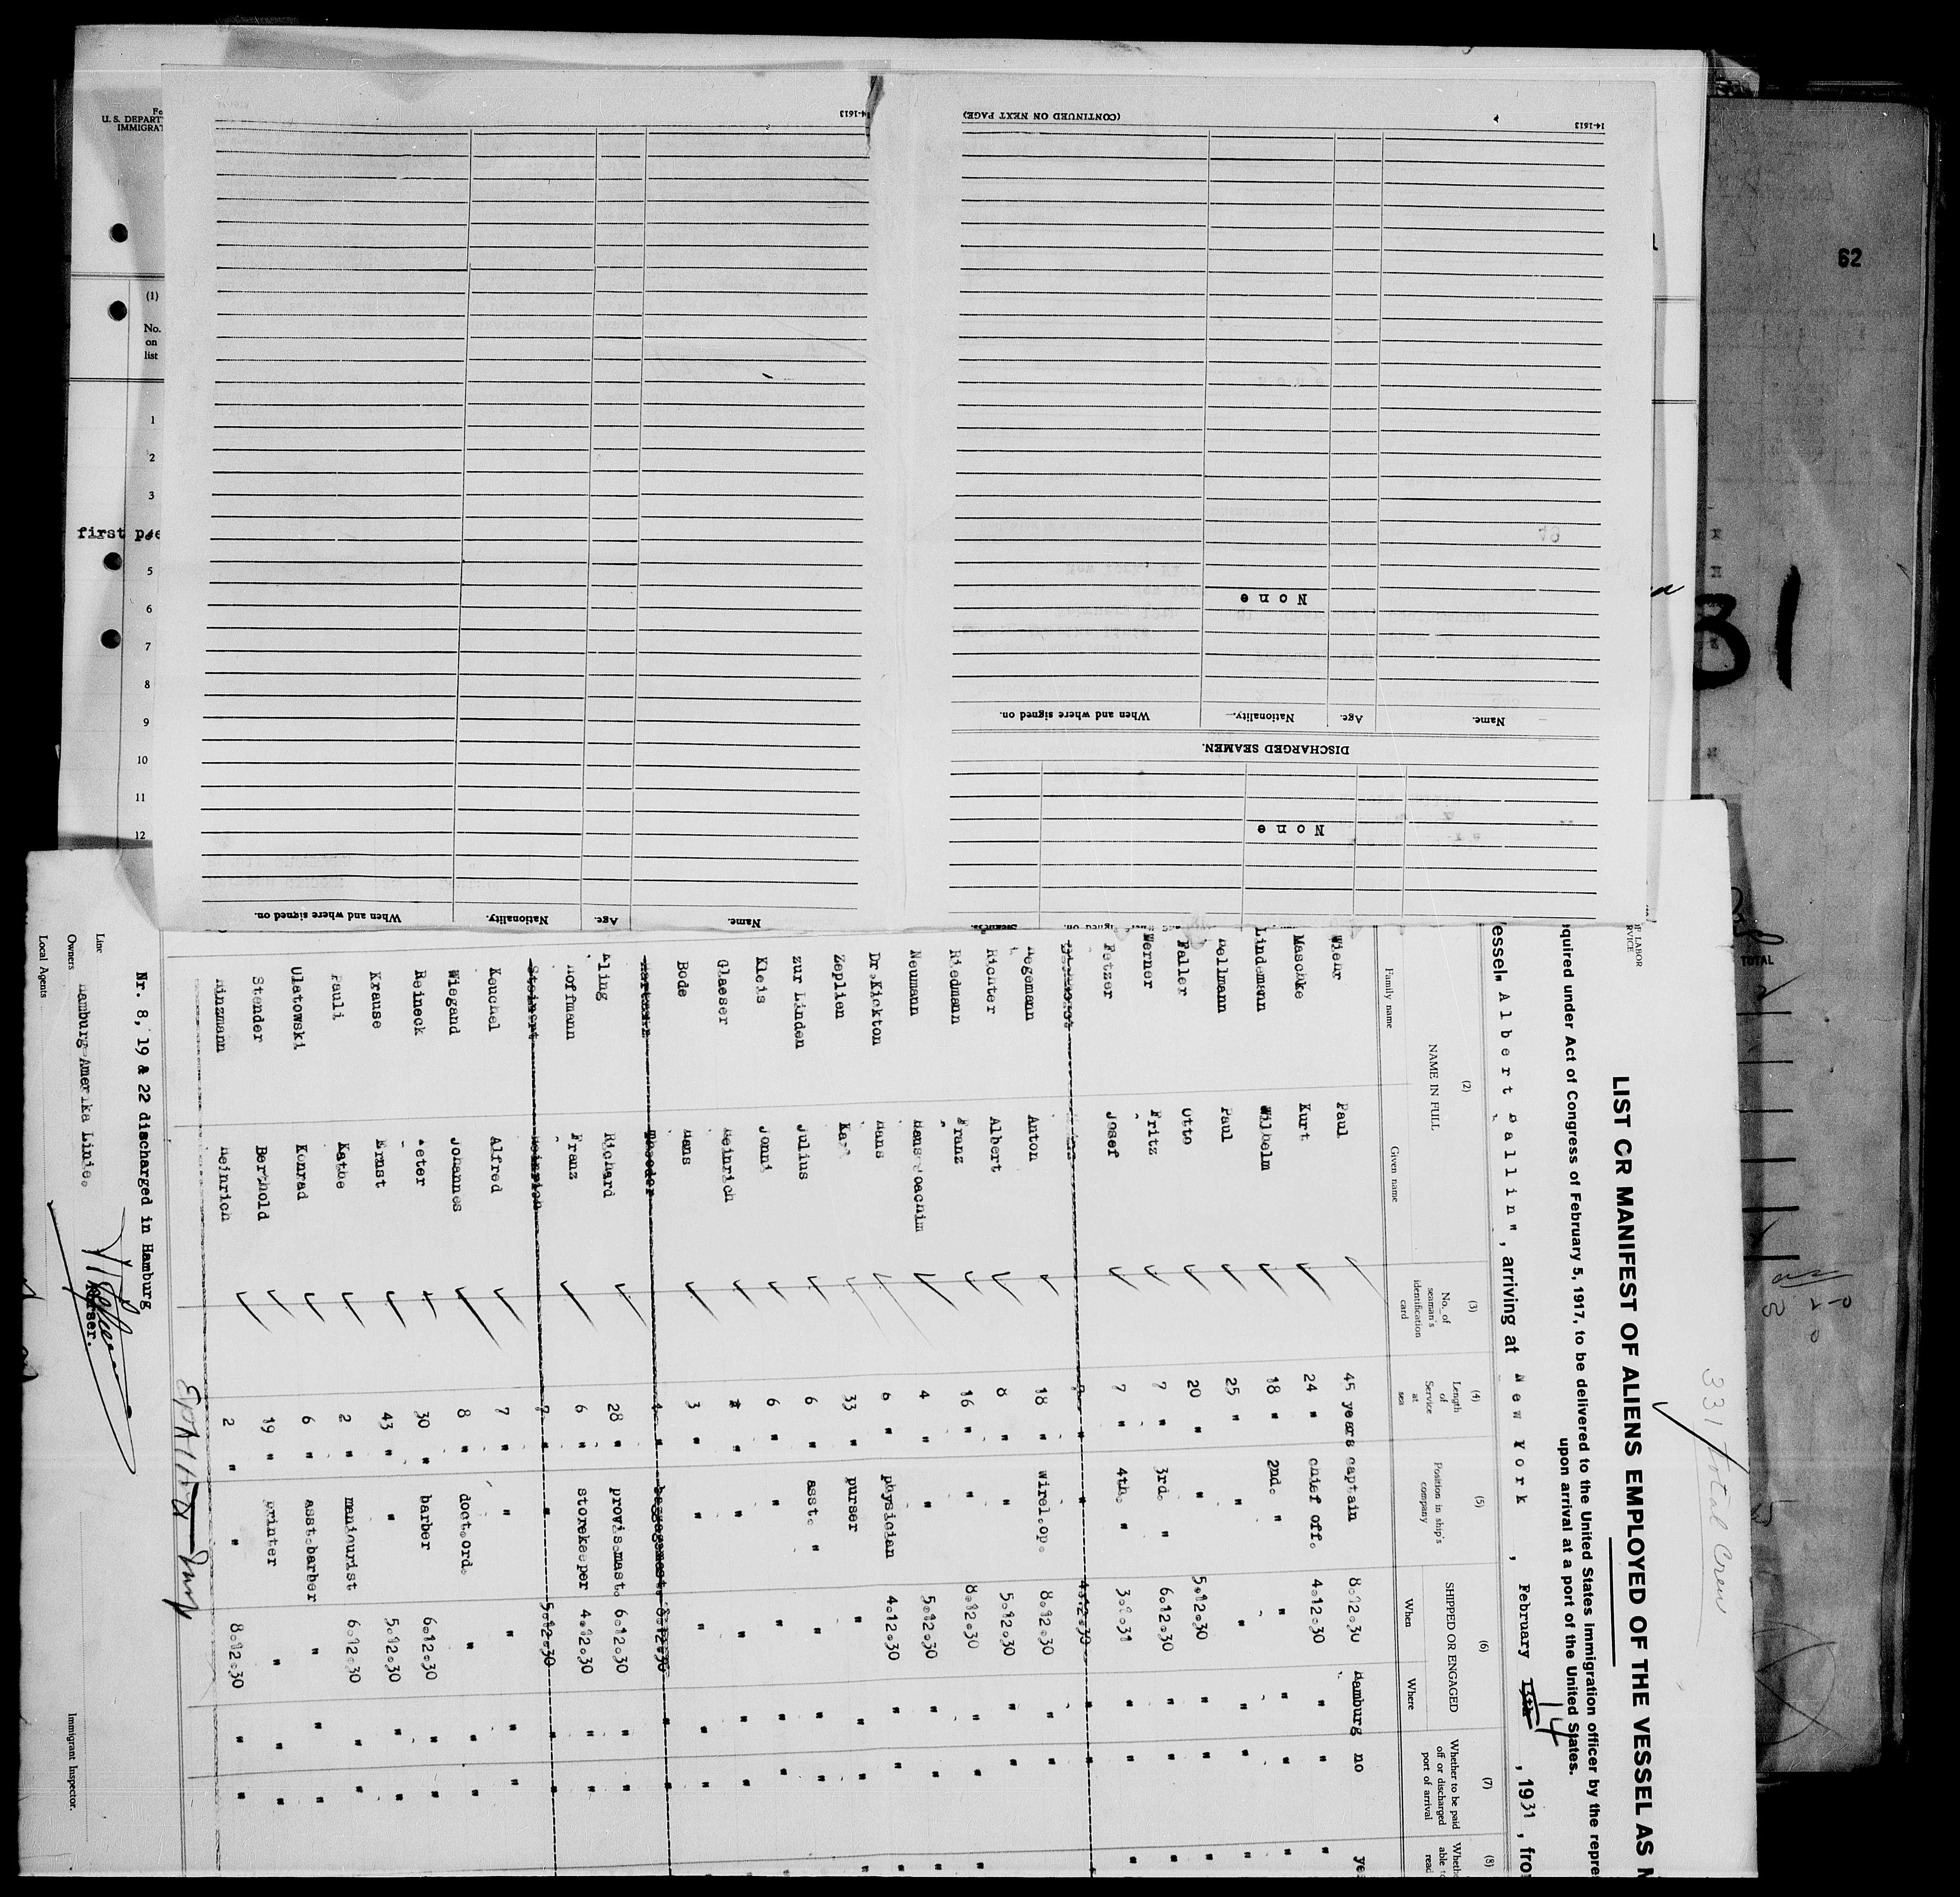 U. S. DEPART
IMMIGRAT
(1)
No.
on
list
1
2
3
first
5
6
7
8
9
10
11
12
14-1613
When and where signed on.
Nationality.
Age.
Name.
14-1613
(CONTINUED ON NEXT PAGE)
None
When and where signed on.
Nationality.
Age.
Name.
DISCHARGED SEAMEN.
None
62
31
TOTAL
331 total crew
LIST OR MANIFEST OF ALIENS EMPLOYED ON THE VESSEL AS M
quired under Act of Congress of February 5, 1917, to be delivered to the United States immigration officer by the repre
upon arrival at a port of the United States.
essel "Albert Ballin", arriving at New York, February 13th 14, 1931, fro
(2) (3) (4) (5) (6) (7) (8)
NAME IN FULL
Family name Given name
No. of seaman's identification card
Length of Service at sea
Position in ship's company
SHIPPED OR ENGAGED
When Where
Whether to be paid off or discharged port of arrival
Wiehr Paul 45 years captain 8.12.30 Hamburg no
Maschke Kurt 24 " chief off. 4.12.30 " "
Lindemann Wilhelm 18 " 2nd. " " " "
Paul 25 " " " " "
Faller Otto 20 " " 5.12.30 " "
Werner Fritz 7 " 3rd. " 6.12.30 " "
Fetzer Josef 7 " 4th. " 3.2.31 " "
4.12.30
Hegemann Anton 18 " wirel.op. 8.12.30 " "
Richter Albert 8 " " 5.12.30 " "
Riedmann Franz 16 " " 8.12.30 " "
Neumann Hans-Joachim 4 " " 5.12.30 " "
Dr.Kickton Hans 6 " physician 4.12.30 " "
Zeplien Karl 33 " purser " " "
zur Linden Julius 6 " asst. " " " "
Kleis Jonni 6 " " " " "
Glaeser Heinrich " " " " "
Bode Hans 3 " " " " "
Hartmann Theodor 4 " baggagemast. 8.12.30 " "
Aling Richard 28 " provis.mast. 6.12.30 " "
Hoffmann Franz 6 " storekeeper 4.12.30 " "
Steinert Heinrich 7 " " 5.12.30 " "
Keuchel Alfred 7 " " " " "
Wiegand Johannes 8 " doct.ord. " " "
Reineck Peter 30 " barber 6.12.30 " "
Krause Ernst 43 " " 5.12.30 " "
Pauli Kathe 2 " manicurist 6.12.30 " "
Ulatowski Konrad 6 " asst.barber " " "
Stender Berthold 19 " printer " " "
Hinzmann Heinrich 2 " " 8.12.30 " "
Nr. 8, 19 & 22 discharged in Hamburg
Purser.
Line
Owners Hamburg-Amerika Linie.
Local Agents
Immigrant Inspector.